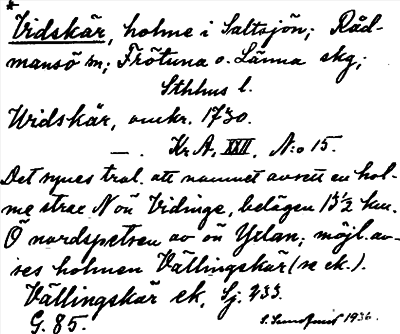 * Vidskär, holme i Saltsjön; Råd-
mansö sn; Frötuna o. Länna skg;
Sthlms l.
Widskär, omkr. 1730.
— . Kr. A. XXII, N:o 15.
Det synes trol. att namnet avsett en hol-
me strax N ön Vidinge, belägen 1 ½ km.
Ö nordspetsen av ön Yxlan; möjl. av-
ses holmen Vällingskär (se ek.).
Vällingskär ek, Sj. 233.
G. 85.
1936.